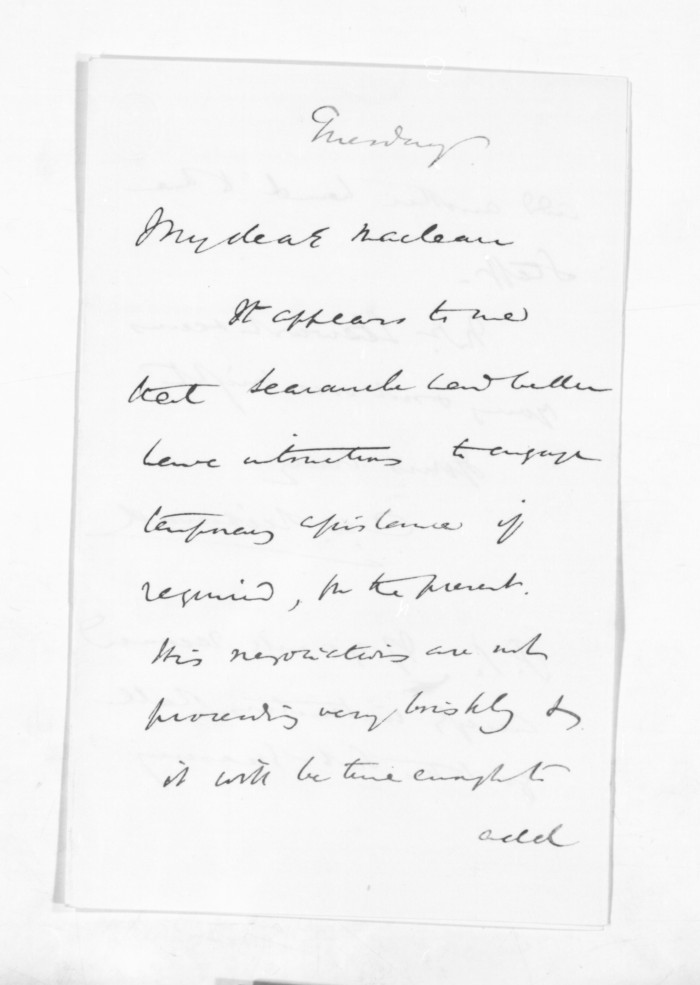 Tuesday
My dear Maclean
It appears to me
that Searancke had better
have instructions to engage
temporary assistance if
required, for the present.
His negociations are not
proceeding very briskly &
it will be time enough to
add